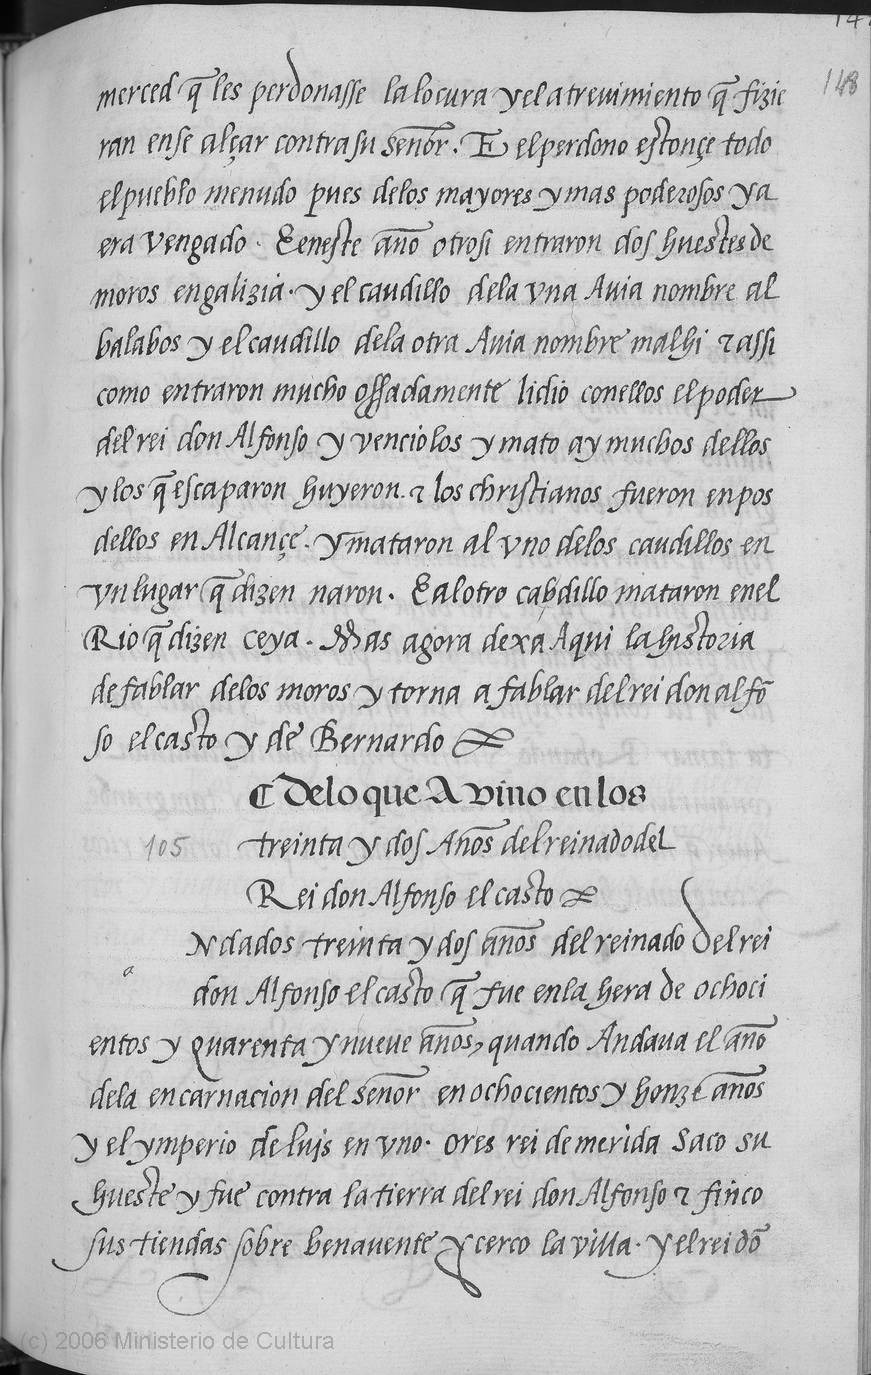 148
merced q̄ les perdonasse la locura y el atrevimiento q̄ fizie
ran ense alçar contra su señor. E el perdono estonçe todo
el pueblo menudo pues delos mayores y mas poderosos ya
era vengado. E eneste año otrosi entraron dos huestes de
moros en galizia. y el caudillo dela vna Auia nombre al
balabos y el caudillo dela otra Auia nombre malhi & assi
como entraron mucho ossadamente lidio conellos el poder
del rei don Alfonso y venciolos y mato ay muchos dellos
y los q̄ escaparon huyeron. & los christianos fueron en pos
dellos en Alcançe. y mataron al vno delos caudillos en
vn lugar q̄ dizen naron. E al otro cabdillo mataron enel
Rio q̄ dizen ceya. Mas agora dexa Aqui la historia
de fablar delos moros y torna a fablar del rei don alfō
so el casto y de Bernardo
¶ Delo que A vino en los
105 treinta y dos Años del reinado del
Rei don Alfonso el casto
a Ndados treinta y dos años del reinado del rei
don Alfonso el casto q̄ fue enla hera de ochoci
entos y quarenta y nueve años, quando Andaua el año
dela encarnacion del señor en ochocientos y honze años
y el ymperio de luis en vno. ores rei de merida saco su
hueste y fue contra la tierra del rei don Alfonso & finco
sus tiendas sobre benauente y cerco la villa. y el rei dō
(c) 2006 Ministerio de Cultura